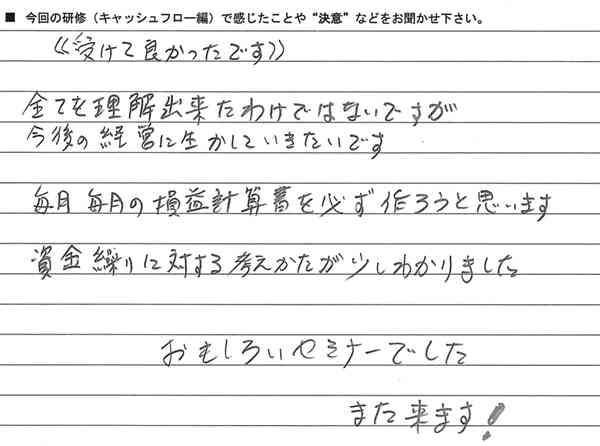 ■ 今回の研修（キャッシュフロー編）で感じたことや“決意”などをお聞かせ下さい。
《受けて良かったです》
全てを理解出来たわけではないですが
今後の経営に生かしていきたいです
毎月毎月の損益計算書を必ず作ろうと思います
資金繰りに対する考えかたが少しわかりました
おもしろいセミナーでした
また来ます！